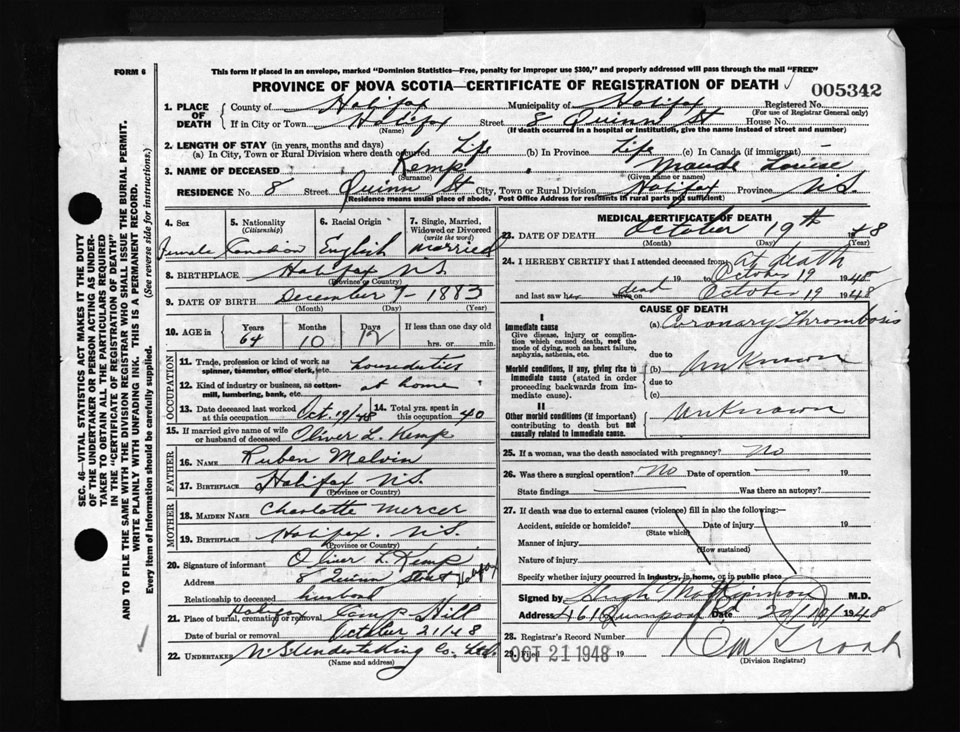 FORM 6
This form if placed in an envelope, marked "Dominion Statistics—Free, penalty for improper use $300," and properly addressed will pass through the mail "FREE"
PROVINCE OF NOVA SCOTIA—CERTIFICATE OF REGISTRATION OF DEATH
005342
1. PLACE OF DEATH
County of Halifax Municipality of Halifax Registered No.
(For use of Registrar General only)
If in City or Town Halifax Street 8 Quinn St House No.
(Name) (If death occurred in a hospital or institution, give the name instead of street and number)
2. LENGTH OF STAY (in years, months and days)
(a) In City, Town or Rural Division where death occurred Life (b) In Province Life (c) In Canada (if immigrant)
3. NAME OF DECEASED Kemp, Maude Louise
(Surname) (Given name or names)
RESIDENCE No. 8 Street Quinn St City, Town or Rural Division Halifax Province N.S.
(Residence means usual place of abode. Post Office Address for residents in rural parts not sufficient)
4. Sex Female
5. Nationality (Citizenship) Canadian
6. Racial Origin English
7. Single, Married, Widowed or Divorced (write the word) married
8. BIRTHPLACE Halifax N.S.
(Province or Country)
9. DATE OF BIRTH December 7 - 1883
(Month) (Day) (Year)
10. AGE in Years 64 Months 10 Days 12 If less than one day old hrs. or min.
OCCUPATION
11. Trade, profession or kind of work as spinner, teamster, office clerk, etc. housduties
12. Kind of industry or business, as cotton-mill, lumbering, bank, etc. at home
13. Date deceased last worked at this occupation Oct. 19/48 14. Total yrs. spent in this occupation 40
15. If married give name of wife or husband of deceased Oliver L. Kemp
FATHER
16. NAME Ruben Melvin
17. BIRTHPLACE Halifax N.S.
(Province or Country)
MOTHER
18. MAIDEN NAME Charlotte Mercer
19. BIRTHPLACE Halifax. N.S.
(Province or Country)
20. Signature of informant Oliver L. Kemp
Address 8 Quinn Street Halifax
Relationship to deceased husband
21. Place of burial, cremation or removal Halifax Camp Hill
Date of burial or removal October 21/48
22. UNDERTAKER N.S. Undertaking Co. Ltd.
(Name and address)
MEDICAL CERTIFICATE OF DEATH
23. DATE OF DEATH October 19th 1948
(Month) (Day) (Year)
24. I HEREBY CERTIFY that I attended deceased from at death
19 to October 19 1948
and last saw her dead alive on October 19 1948
CAUSE OF DEATH
I
Immediate cause
Give disease, injury or complication which caused death, not the mode of dying, such as heart failure, asphyxia, asthenia, etc.
(a) Coronary Thrombosis
due to
Morbid conditions, if any, giving rise to immediate cause (stated in order proceeding backwards from immediate cause).
(b) Unknown
due to
(c)
II
Other morbid conditions (if important) contributing to death but not causally related to immediate cause.
Unknown
25. If a woman, was the death associated with pregnancy? No
26. Was there a surgical operation? No Date of operation 19
State findings Was there an autopsy?
27. If death was due to external causes (violence) fill in also the following:
Accident, suicide or homicide? Date of injury 19
(State which)
Manner of injury
(How sustained)
Nature of injury
Specify whether injury occurred in industry, in home, or in public place
Signed by Hugh MacKinnon M.D.
Address 461 Quinpool Rd Date 20/10/1948
28. Registrar's Record Number
29. Filed OCT 21 1948 19
(Division Registrar)
SEC. 46—VITAL STATISTICS ACT MAKES IT THE DUTY
OF THE UNDERTAKER OR PERSON ACTING AS UNDER-
TAKER TO OBTAIN ALL THE PARTICULARS REQUIRED
IN THE "CERTIFICATE OF REGISTRATION OF DEATH"
AND TO FILE THE SAME WITH THE DIVISION REGISTRAR WHO SHALL ISSUE THE BURIAL PERMIT.
WRITE PLAINLY WITH UNFADING INK. THIS IS A PERMANENT RECORD.
Every item of information should be carefully supplied. (See reverse side for instructions.)